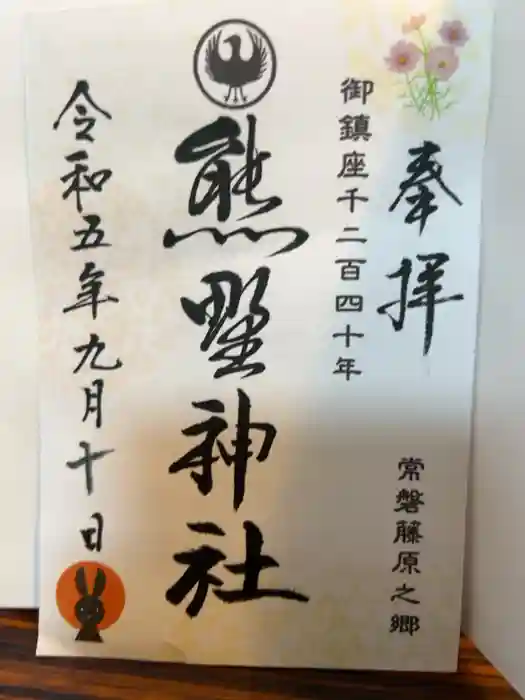 奉拝
常磐藤原之郷
御鎮座千二百四十年
熊野神社
令和五年九月十日